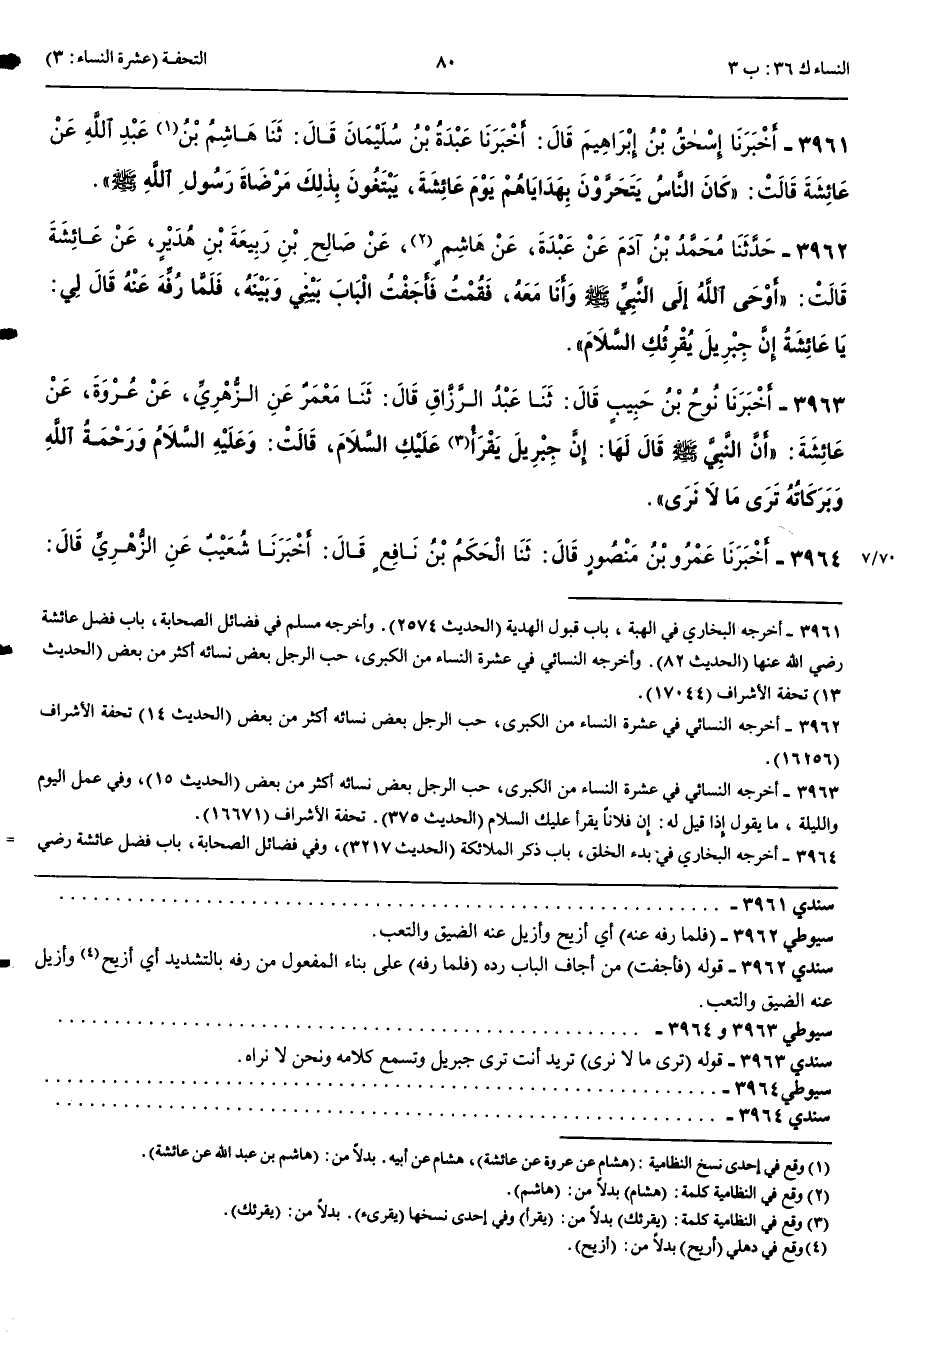 النساء ك ٣٦: ب ٣ ٨٠ التحفة (عشرة النساء: ٣)
٣٩٦١ ـ أَخْبَرَنَا إِسْحٰقُ بْنُ إِبْرَاهِيمَ قَالَ: أَخْبَرَنَا عَبْدَةُ بْنُ سُلَيْمَانَ قَالَ: ثَنَا هَاشِمُ بْنُ(١) عَبْدِ ٱللَّهِ عَنْ
عَائِشَةَ قَالَتْ: «كَانَ النَّاسُ يَتَحَرَّوْنَ بِهَدَايَاهُمْ يَوْمَ عَائِشَةَ، يَبْتَغُونَ بِذٰلِكَ مَرْضَاةَ رَسُولِ ٱللَّهِ ﷺ».
٣٩٦٢ ـ حَدَّثَنَا مُحَمَّدُ بْنُ آدَمَ عَنْ عَبْدَةَ، عَنْ هَاشِمٍ(٢)، عَنْ صَالِحِ بْنِ رَبِيعَةَ بْنِ هُدَيْرٍ، عَنْ عَائِشَةَ
قَالَتْ: «أَوْحَى ٱللَّهُ إِلَى النَّبِيِّ ﷺ وَأَنَا مَعَهُ، فَقُمْتُ فَأَجَفْتُ الْبَابَ بَيْنِي وَبَيْنَهُ، فَلَمَّا رُفِّهَ عَنْهُ قَالَ لِي:
يَا عَائِشَةُ إِنَّ جِبْرِيلَ يُقْرِئُكِ السَّلَامَ».
٣٩٦٣ ـ أَخْبَرَنَا نُوحُ بْنُ حَبِيبٍ قَالَ: ثَنَا عَبْدُ الرَّزَّاقِ قَالَ: ثَنَا مَعْمَرٌ عَنِ الزُّهْرِيِّ، عَنْ عُرْوَةَ، عَنْ
عَائِشَةَ: «أَنَّ النَّبِيَّ ﷺ قَالَ لَهَا: إِنَّ جِبْرِيلَ يَقْرَأُ(٣) عَلَيْكِ السَّلَامَ، قَالَتْ: وَعَلَيْهِ السَّلَامُ وَرَحْمَةُ ٱللَّهِ
وَبَرَكَاتُهُ تَرَى مَا لَا نَرَى».
٧/٧٠ ٣٩٦٤ ـ أَخْبَرَنَا عَمْرُو بْنُ مَنْصُورٍ قَالَ: ثَنَا الْحَكَمُ بْنُ نَافِعٍ قَالَ: أَخْبَرَنَا شُعَيْبٌ عَنِ الزُّهْرِيِّ قَالَ:
٣٩٦١ ـ أخرجه البخاري في الهبة ، باب قبول الهدية (الحديث ٢٥٧٤). وأخرجه مسلم في فضائل الصحابة، باب فضل عائشة
رضي الله عنها (الحديث ٨٢). وأخرجه النسائي في عشرة النساء من الكبرى، حب الرجل بعض نسائه أكثر من بعض (الحديث
١٣) تحفة الأشراف (١٧٠٤٤).
٣٩٦٢ ـ أخرجه النسائي في عشرة النساء من الكبرى، حب الرجل بعض نسائه أكثر من بعض (الحديث ١٤) تحفة الأشراف
(١٦٢٥٦).
٣٩٦٣ ـ أخرجه النسائي في عشرة النساء من الكبرى، حب الرجل بعض نسائه أكثر من بعض (الحديث ١٥)، وفي عمل اليوم
والليلة ، ما يقول إذا قيل له: إن فلاناً يقرأ عليك السلام (الحديث ٣٧٥). تحفة الأشراف (١٦٦٧١).
٣٩٦٤ ـ أخرجه البخاري في بدء الخلق، باب ذكر الملائكة (الحديث ٣٢١٧)، وفي فضائل الصحابة، باب فضل عائشة رضي =
سندي ٣٩٦١ ـ . . . . . . . . . . . . . . . . . . . .
سيوطي ٣٩٦٢ ـ (فلما رفه عنه) أي أزيح وأزيل عنه الضيق والتعب.
سندي ٣٩٦٢ ـ قوله (فأجفت) من أجاف الباب رده (فلما رفه) على بناء المفعول من رفه بالتشديد أي أزيح(٤) وأزيل
عنه الضيق والتعب.
سيوطي ٣٩٦٣ و ٣٩٦٤ ـ . . . . . . . . . . . . . . . . . . . .
سندي ٣٩٦٣ ـ قوله (ترى ما لا نرى) تريد أنت ترى جبريل وتسمع كلامه ونحن لا نراه.
سيوطي ٣٩٦٤ ـ . . . . . . . . . . . . . . . . . . . .
سندي ٣٩٦٤ ـ . . . . . . . . . . . . . . . . . . . .
(١) وقع في إحدى نسخ النظامية : (هشام عن عروة عن عائشة)، هشام عن أبيه. بدلاً من: (هاشم بن عبد الله عن عائشة).
(٢) وقع في النظامية كلمة: (هشام) بدلاً من: (هاشم).
(٣) وقع في النظامية كلمة: (يقرئك) بدلاً من: (يقرأ) وفي إحدى نسخها (يقرىء). بدلاً من: (يقرئك).
(٤) وقع في دهلي (أريح) بدلاً من: (أزيح).